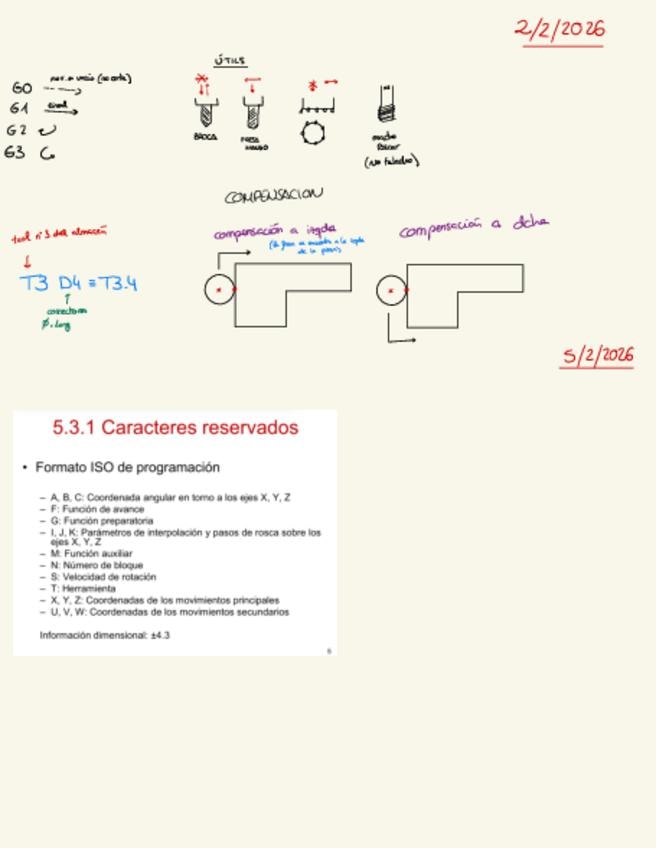 2/2/2026
ÚTILS
G0 mov. en vacio (no corta)
G1
G2
G3
BROCA
FRESA MANGO
macho
(No taladro)
COMPENSACION
tool nº3 del almacén
T3 D4 = T3.4
correctores
Ø, long
compensación a izqda
(la fresa se encuentra a la izqda
de la pieza)
compensación a dcha
5/2/2026
5.3.1 Caracteres reservados
• Formato ISO de programación
– A, B, C: Coordenada angular en torno a los ejes X, Y, Z
– F: Función de avance
– G: Función preparatoria
– I, J, K: Parámetros de interpolación y pasos de rosca sobre los
ejes X, Y, Z
– M: Función auxiliar
– N: Número de bloque
– S: Velocidad de rotación
– T: Herramienta
– X, Y, Z: Coordenadas de los movimientos principales
– U, V, W: Coordenadas de los movimientos secundarios
Información dimensional: ±4.3
6